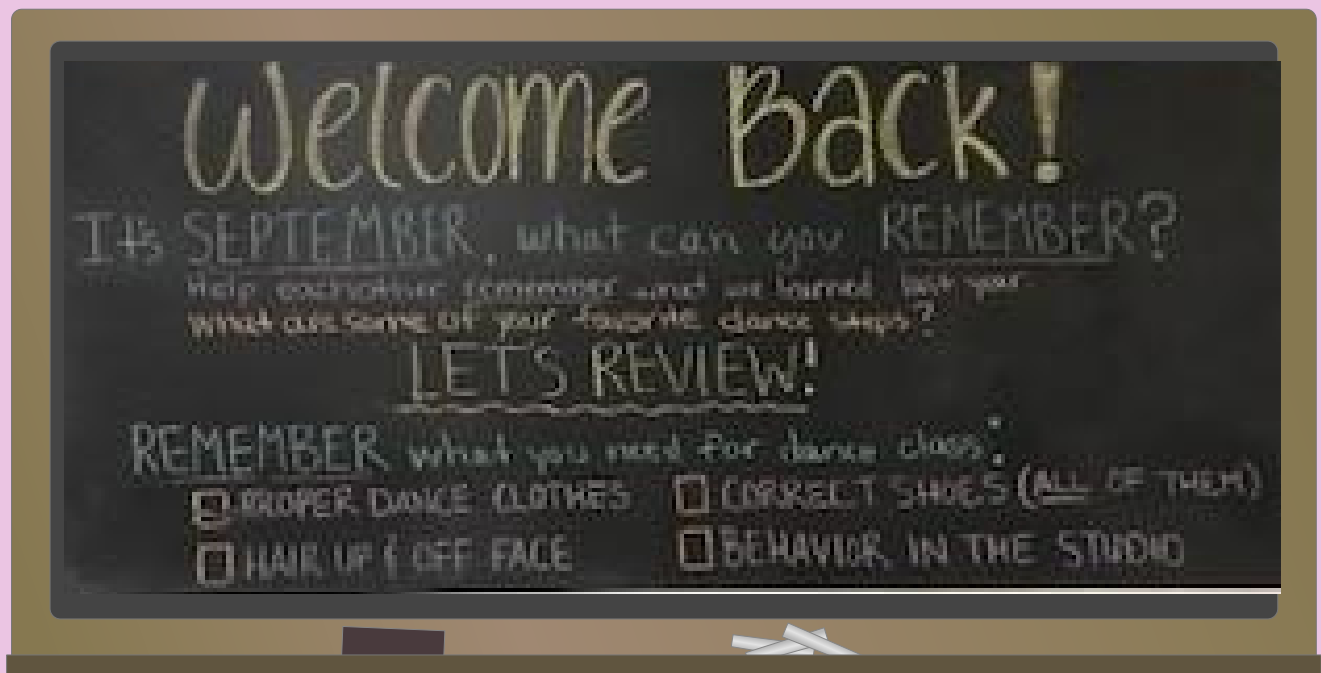 Welcome Back!
It's SEPTEMBER, what can you REMEMBER?
Help eachother remember what we learned last year
What are some of your favorite dance steps?
LET'S REVIEW!
REMEMBER what you need for dance class:
PROPER DANCE CLOTHES
CORRECT SHOES (ALL OF THEM)
HAIR UP & OFF FACE
BEHAVIOR IN THE STUDIO